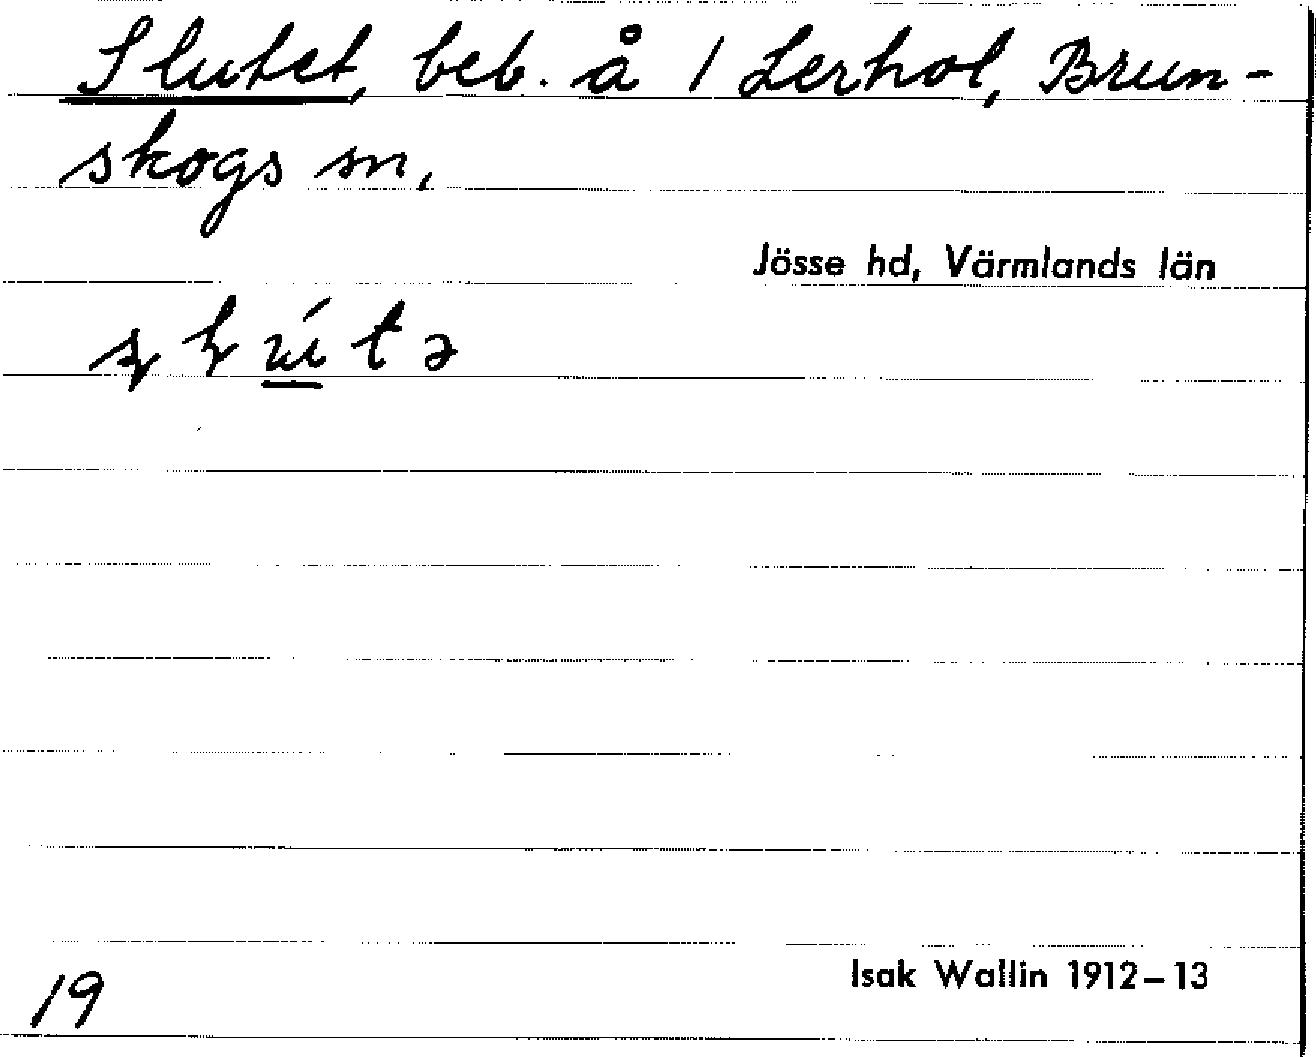 Slutet, beb. å 1 Lerhol, Brun-
skogs sn,
Jösse hd, Värmlands län
Isak Wallin 1912–13
19